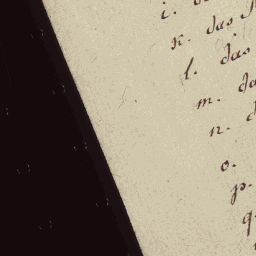 i.
k. das
l. das
m. da
n. d
o.
p.
q.